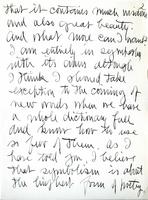 that it contains much wisdom
and also great beauty.
And what more can I want
I am entirely in sympathy
with its aims although
I think I should take
exception to the coming of
new words when we have
a whole dictionary full
and know how to use
so few of them. as I
have told you, I believe
that symbolism is about
the highest form of poetry